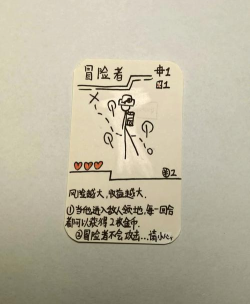 冒险者
#1
⊞1
②2
风险越大，收益越大。
①当他进入敌人领地，每一回合
都可以获得2枚金币。
②冒险者不会攻击…请小心